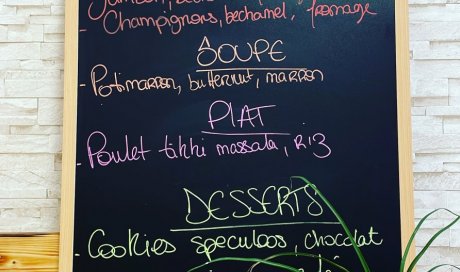 - Champignons, bechamel, fromage
SOUPE
- Potimarron, butternut, marron
PLAT
- Poulet tikki massala, Riz
DESSERTS
- Cookies speculoos, chocolat